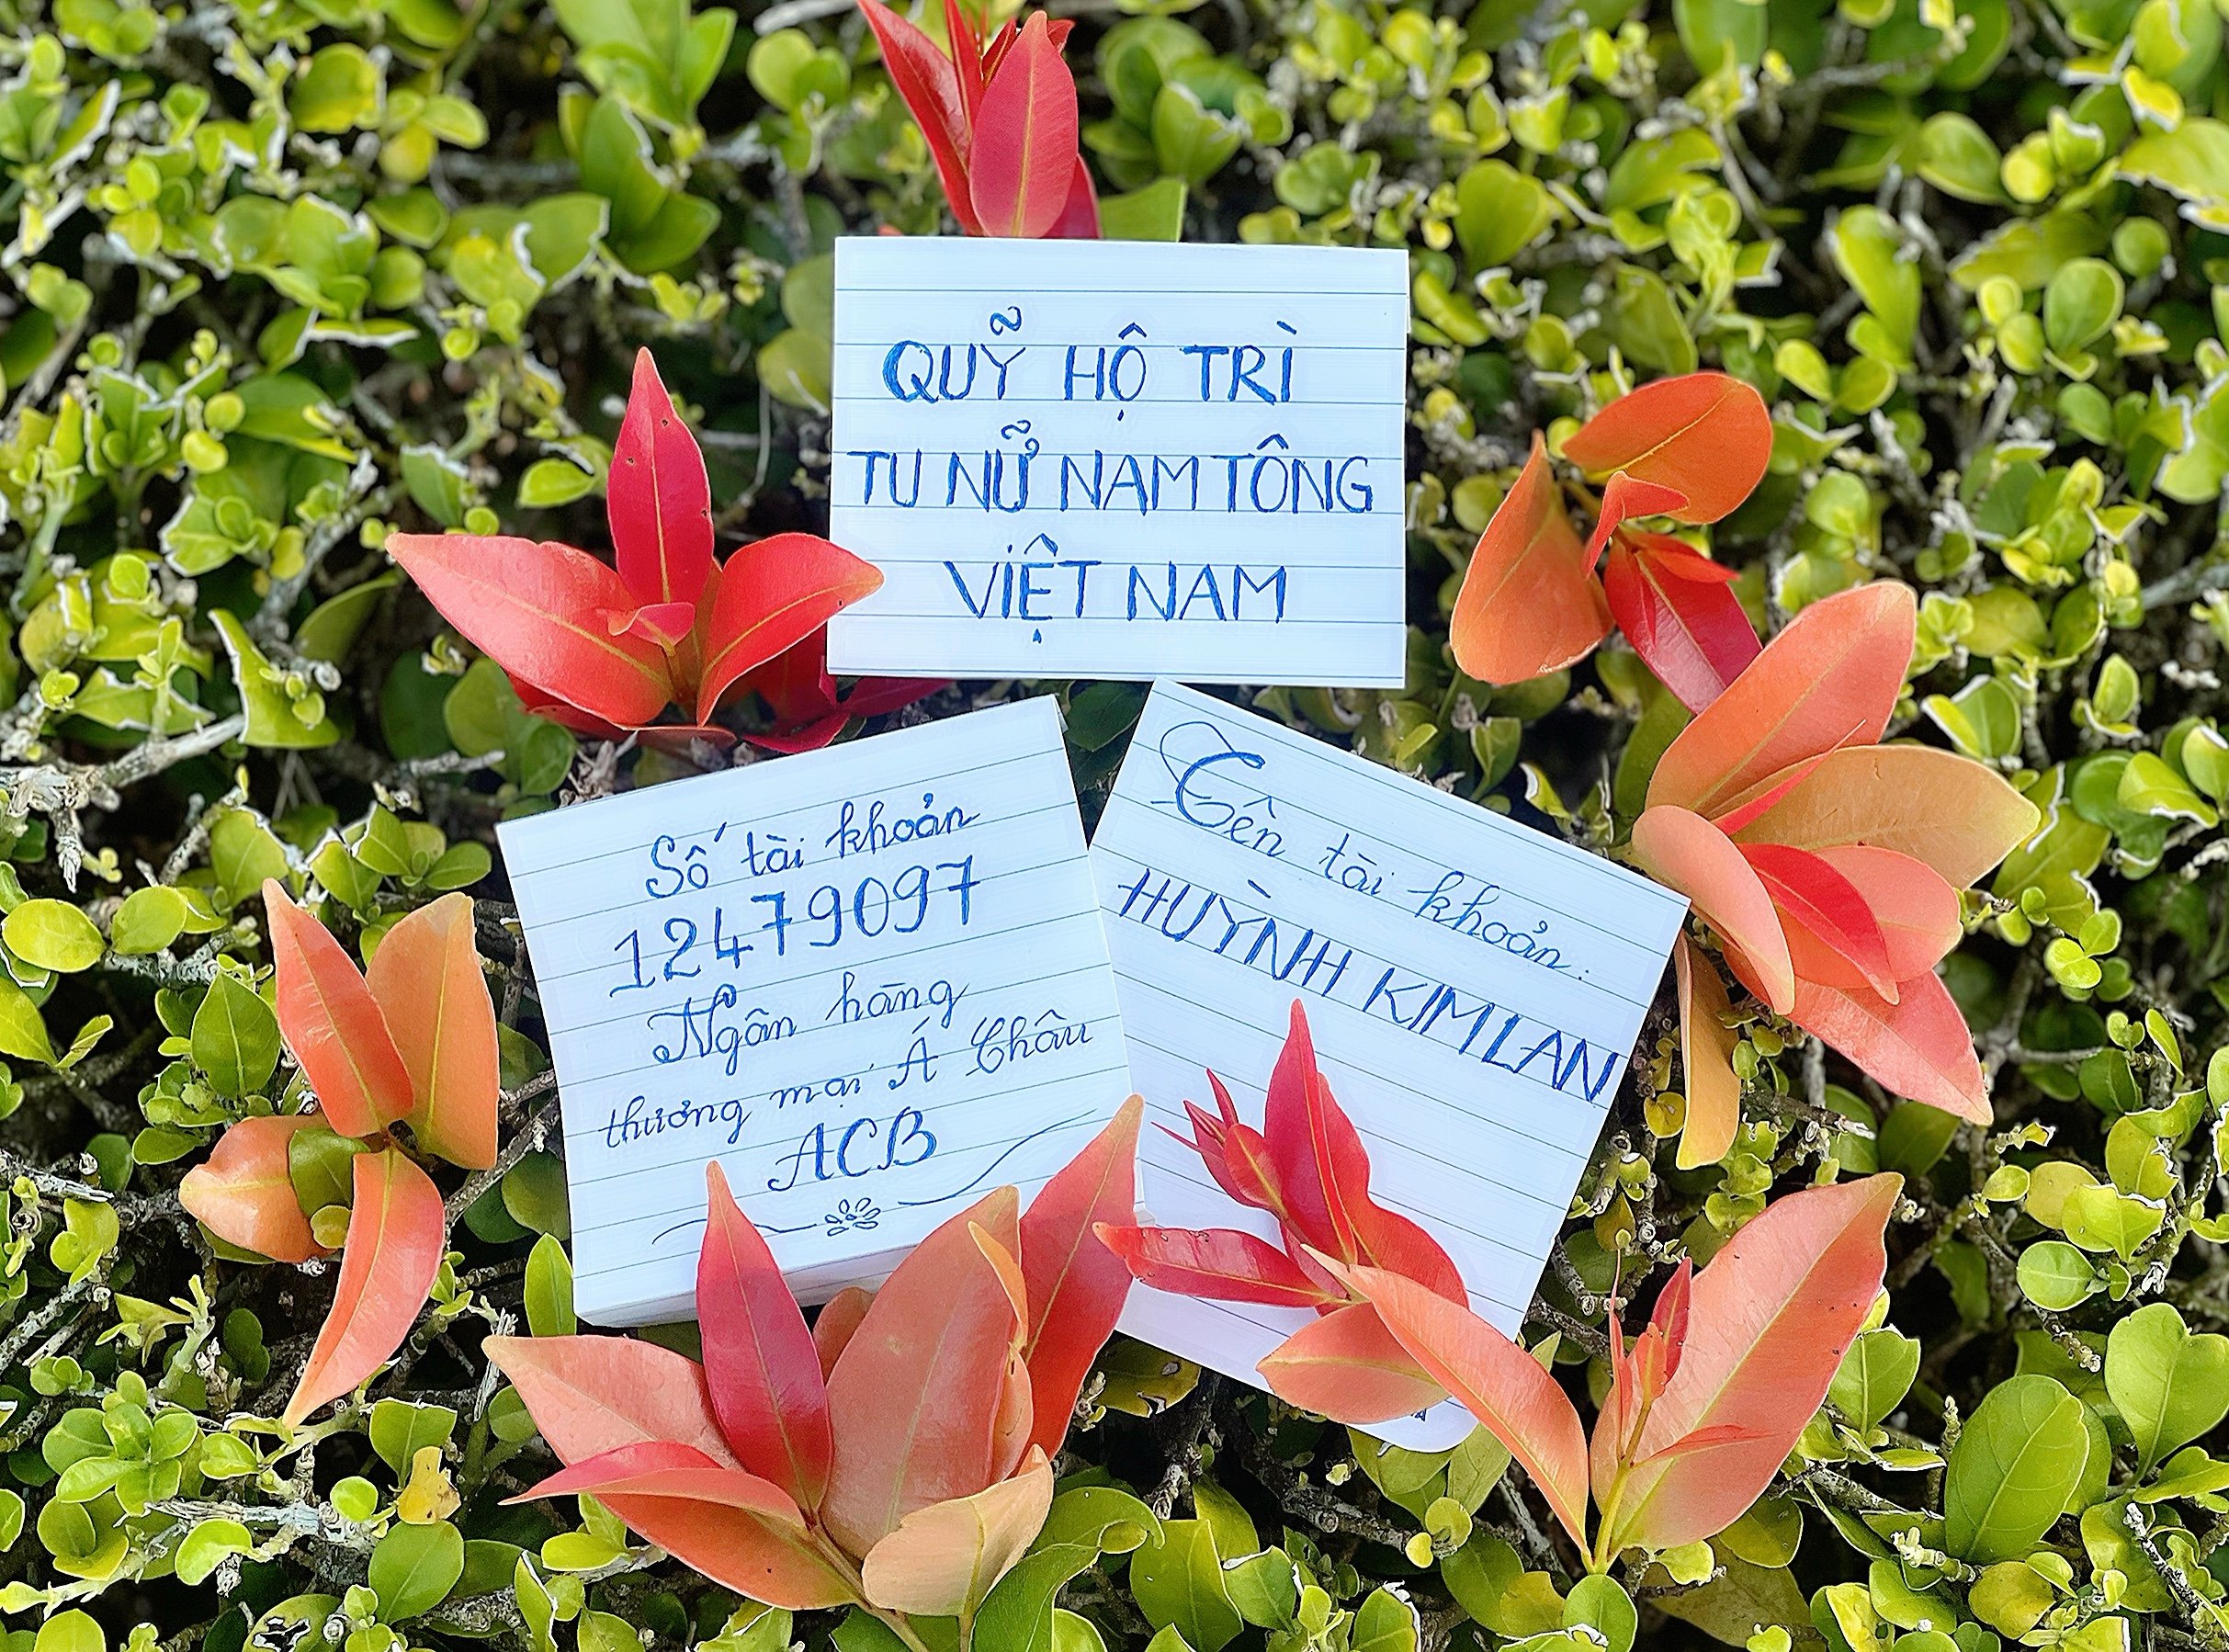 QUỸ HỘ TRÌ
TU NỮ NAM TÔNG
VIỆT NAM
Số tài khoản
12479097
Ngân hàng
thương mại Á Châu
ACB
Tên tài khoản:
HUỲNH KIM LAN